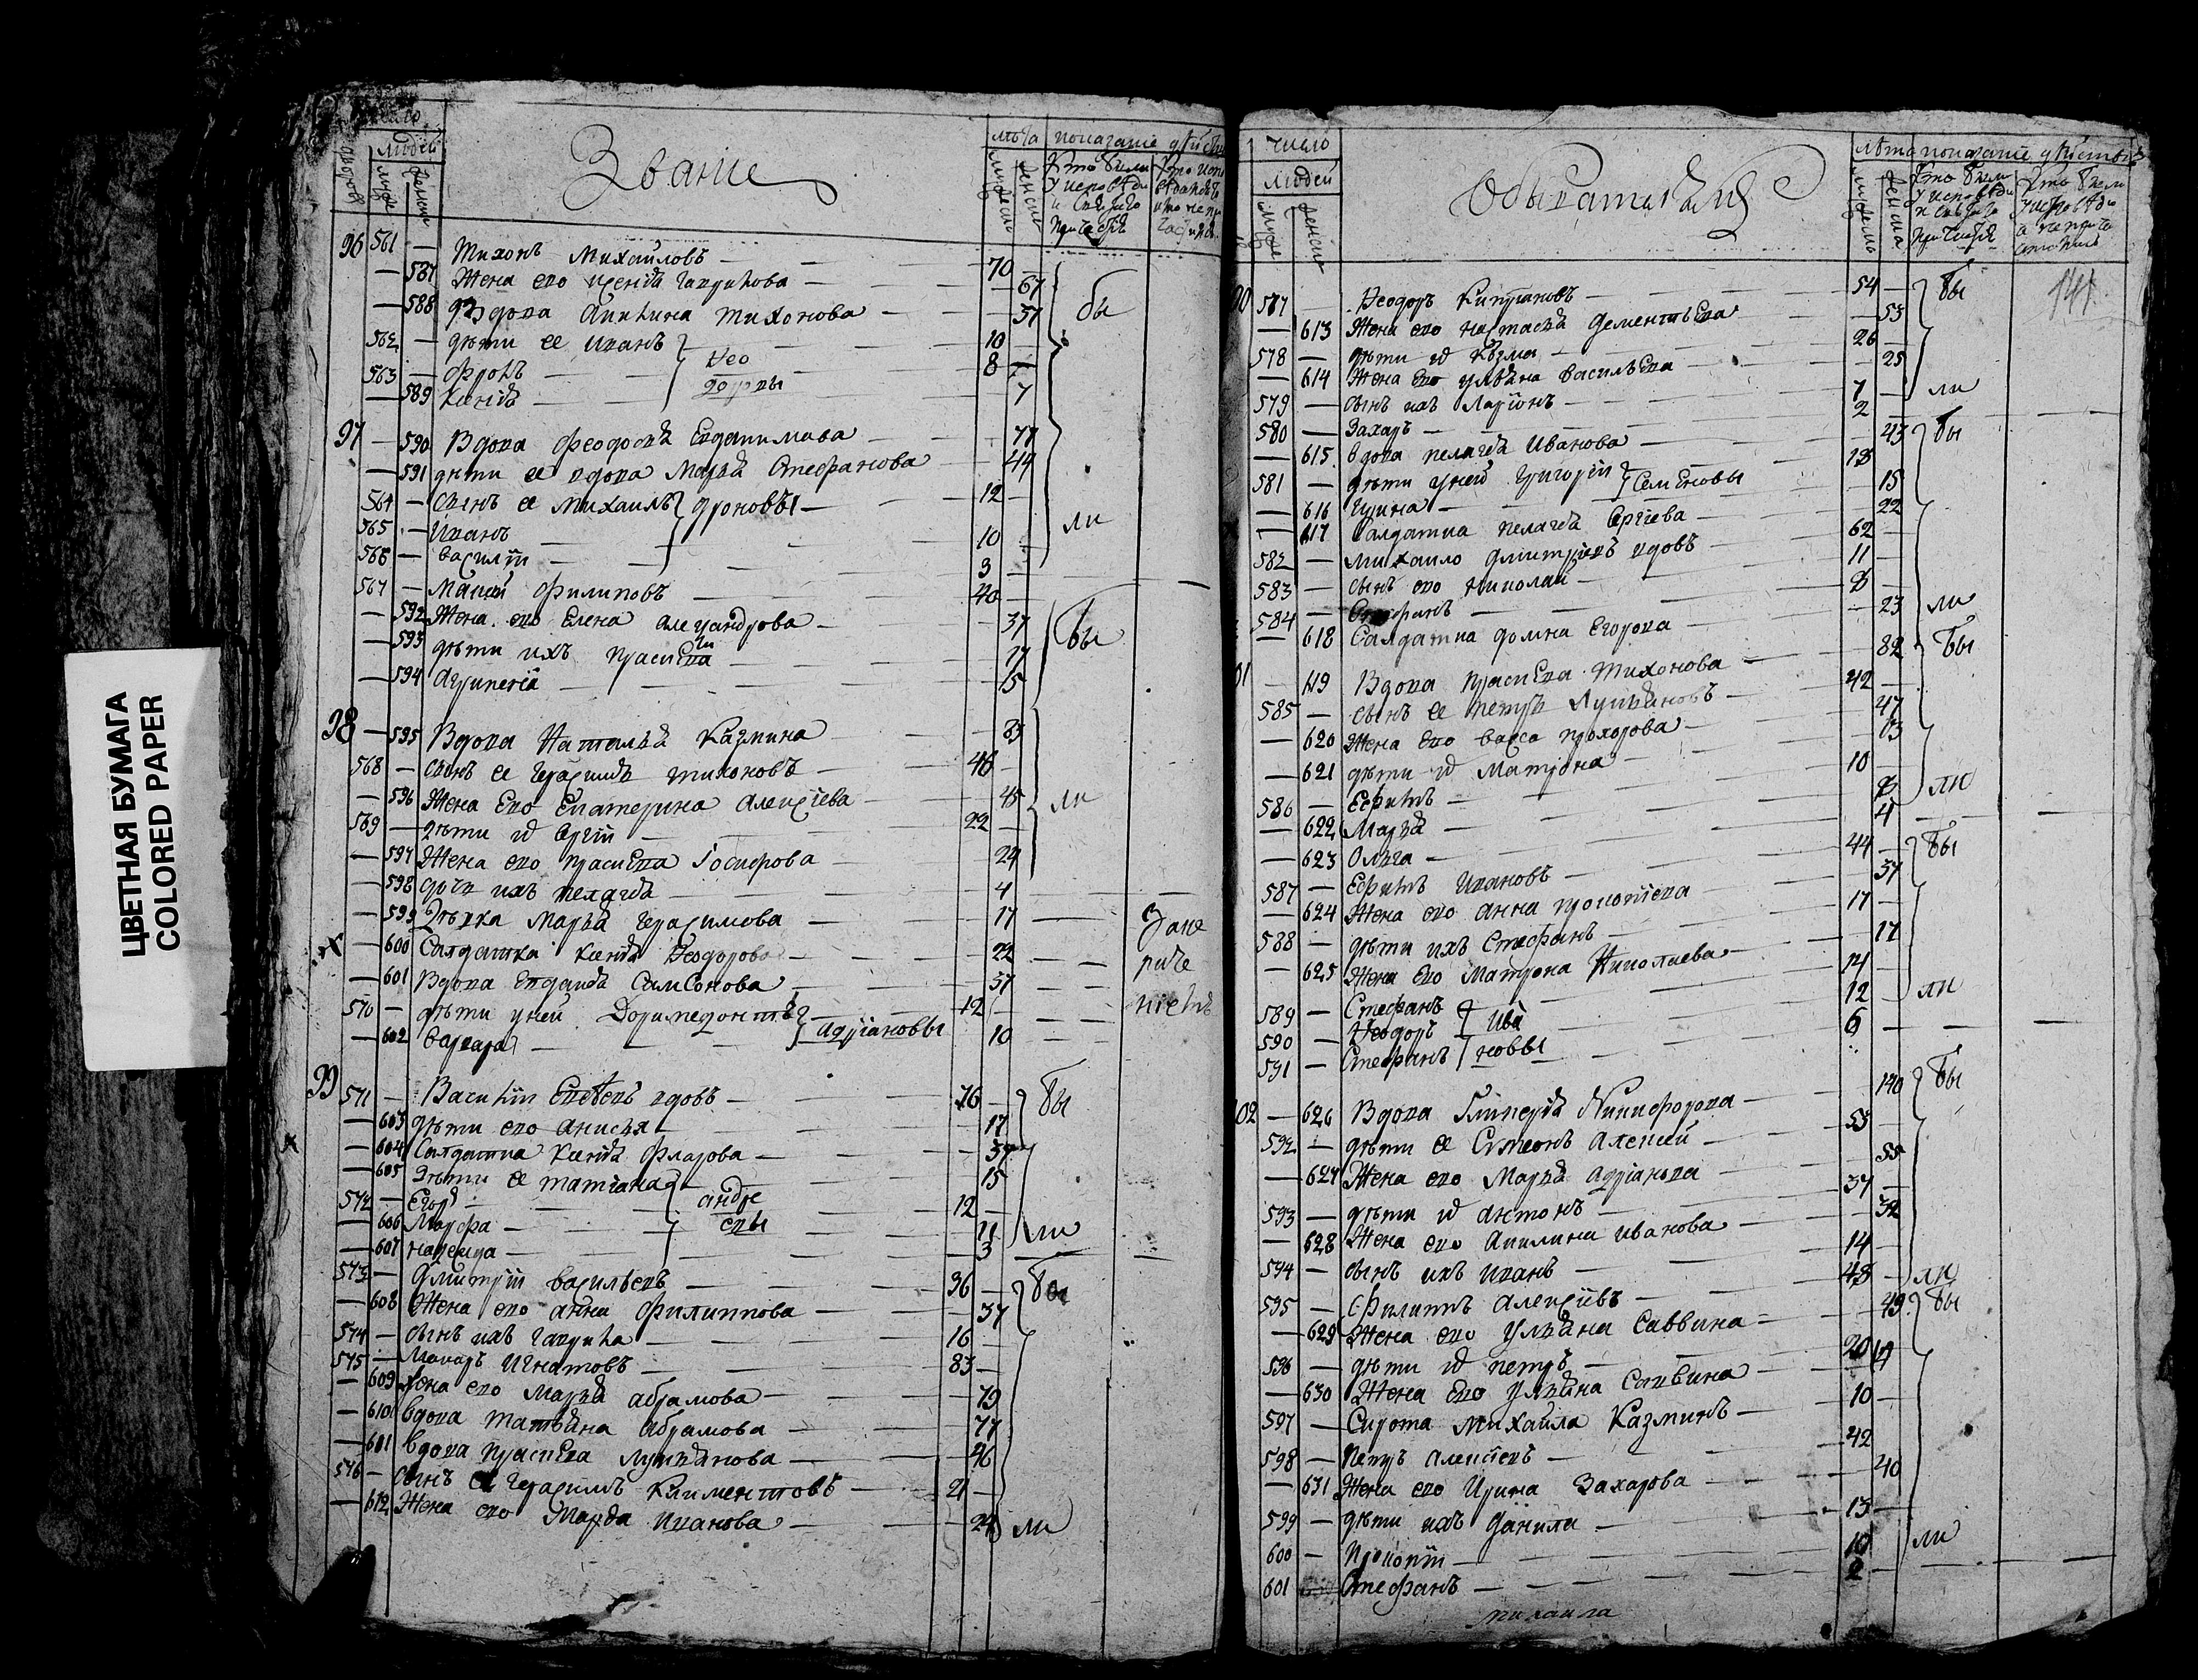 ЦВЕТНАЯ БУМАГА
COLORED PAPER
Людей
Званіе
лѣта показаніе дѣйств
мужеск женск
Кто были у исповѣди и святаго причастія
96 561 — Тихонъ Михайловъ — 70
587 Жена его Ксеніа Гаврилова — 67 бы
588 Вдова Акилина Тихонова — 37
562 — дѣти ее Иванъ — 10
563 — Фролъ — Ѳео 8
589 Ксеніа — доровы 7
97 — 590 Вдова Феодосіа Евдокимова — 77
591 дѣти ее вдова Марѳа Стефанова — 44
564 — сынъ ее Михаилъ Дроновы — 12
565 — Иванъ — 10 ли
566 — Василій — 3
567 — Филиповъ — 40
592 Жена его Елена Александрова — 37 бы
593 дѣти ихъ Праскева — 17
594 Агрипена — 15
98 — 595 Вдова Наталіа Казмина — 83
568 — сынъ ее Герасимъ Тихоновъ — 48
596 Жена Его Екатерина Алексіева — 45 ли
569 — дѣти их Сергій — 22
597 Жена его Праскева Іосифова — 24
598 дочь ихъ Пелагіа — 4
599 Дѣвка Маріа Герасимова — 17 — Зане
600 Салдатка Ксеніа Ѳеодорова — 22 — — раче
601 Вдова Евдокіа Самсонова — 37 — — ніемъ
570 — дѣти у ней Доримедонтъ — 12 — —
602 Варвара — Адріановы 10 — —
99 571 — Василій Евсѣевъ вдовъ — 76 бы
603 дѣти его Анисья — 17
604 Салдатка Ксеніа Фларова — 37
605 Дѣти ее Татіана — 15
572 — Егоръ — андре 12
606 Марфа — евы 11 ли
607 Надежда — 3
573 — Дмитрій Васильевъ — 36 бы
608 Жена его Анна Филиппова — 37
574 — сынъ ихъ Гаврила — 16
575 — Макаръ Игнатовъ — 83
609 Жена его Маріа Абрамова — 79
610 Вдова Татьяна Абрамова — 77
611 Вдова Праскева Лукьянова — 46
576 — сынъ ее Герасимъ Климентовъ — 21
612 Жена его Марѳа Иванова — 24 ли
Число
Людей
мужс женск
Обывательскій
лѣта показаніе дѣйства
Кто были у исповѣди и святаго причастія
Кто были у исповѣди а не причастились
141
577 Ѳеодоръ Кипріановъ — 54 бы
613 Жена его Настасіа Дементьева — 53
578 — дѣти их Козма — 26
614 Жена Его Ульяна Васильева — 25
579 — сынъ ихъ Ларіонъ — 7 ли
580 — Захаръ — 2
615 Вдова Пелагіа Иванова — 43 бы
581 — дѣти у ней Григорій Семеновы — 18
616 Ирина — 15
617 Салдатка Пелагіа Сергіева — 22
582 — Михайло Дмитріевъ вдовъ — 62
583 — сынъ его Николай — 11
584 — Стефанъ — 8
618 Салдатка Домна Егорова — 23 ли
01 — 619 Вдова Праскева Тихонова — 82 бы
585 — сынъ ее Петръ Лукьяновъ — 42
620 Жена Его Васса Прохорова — 47
621 дѣти их Матрона — 13
586 — Ефимъ — 10
622 Маріа — 8 ли
623 Ольга — 4
587 — Ефимъ Ивановъ — 44 бы
624 Жена его Анна Прокопіева — 37
588 — дѣти ихъ Стефанъ — 17
625 Жена Его Матрона Николаева — 17
589 — Стефанъ — Ива 14
590 — Ѳеодоръ — новы 12 ли
591 — Стефанъ — 6
02 — 626 Вдова Гликеріа Никифорова — 70 бы
592 — дѣти ее Симеонъ Алексей — 53
627 Жена его Маріа Адріанова — 55
593 — дѣти их Антонъ — 37
628 Жена его Акилина Иванова — 32
594 — сынъ ихъ Иванъ — 14 ли
595 — Филиппъ Алексіевъ — 48
629 Жена его Ульяна Саввина — 49 бы
596 — дѣти их Петръ — 20
630 Жена Его Ульяна Саввина — 19
597 — Сирота Михайла Казминъ — 10
598 — Петръ Алексіевъ — 42
631 Жена его Ирина Захарова — 40
599 — дѣти ихъ Данила — 13
600 — Прокопій — 10 ли
601 — Стефанъ — 2
Михаила